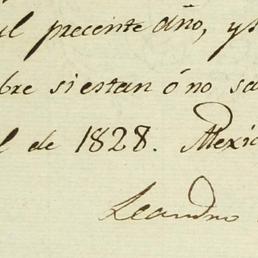 precente año, y
si estan ó no
de 1828. Mexic
Leandro